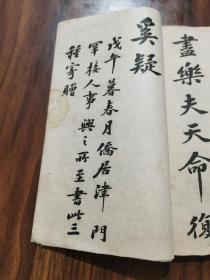 盡樂夫天命復
奚疑
戊午暮春月僑居津門
罕接人事興之所至書此三
種寄贈